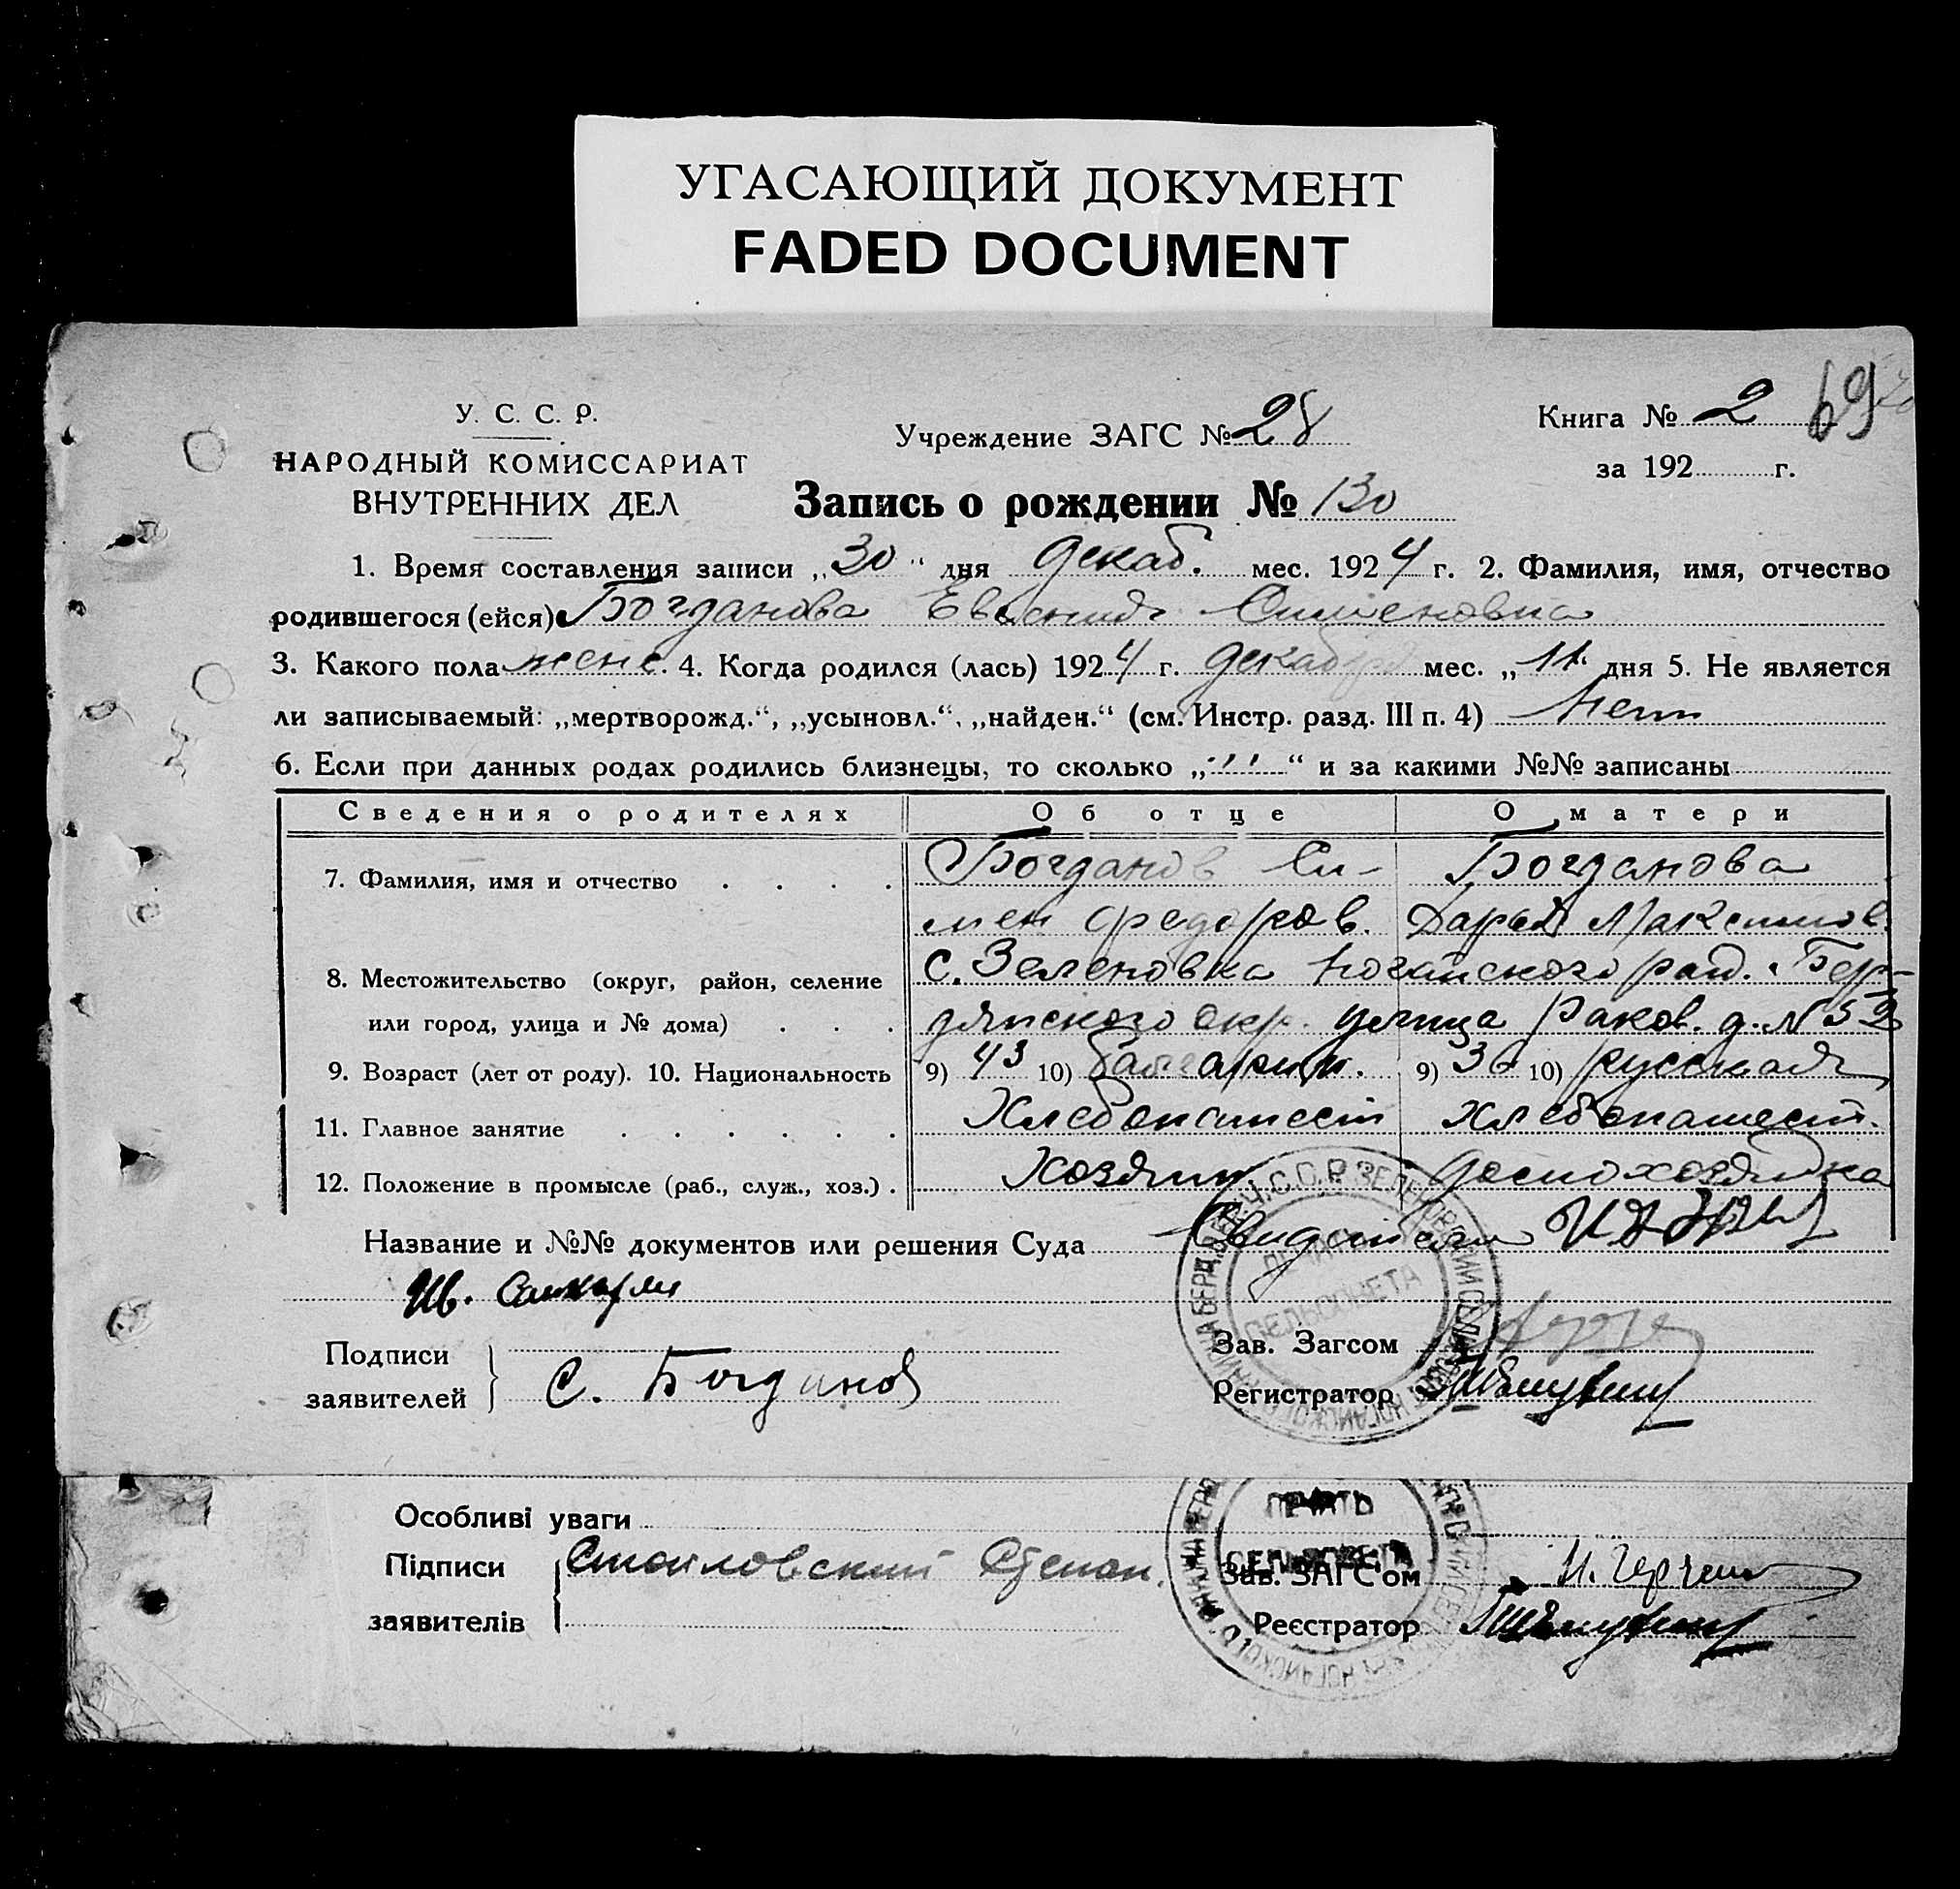 УГАСАЮЩИЙ ДОКУМЕНТ
FADED DOCUMENT
69
У. С. С. Р.
НАРОДНЫЙ КОМИССАРИАТ
ВНУТРЕННИХ ДЕЛ
Учреждение ЗАГС № 28
Книга № 2
за 192 г.
Запись о рождении № 130
1. Время составления записи „30“ дня декаб. мес. 1924 г. 2. Фамилия, имя, отчество
родившегося (ейся) Богданова Евгения Сименовна
3. Какого пола женс. 4. Когда родился (лась) 1924 г. декабря мес. „11“ дня 5. Не является
ли записываемый: „мертворожд.“, „усыновл.“, „найден.“ (см. Инстр. разд. III п. 4) нет
6. Если при данных родах родились близнецы, то сколько „ “ и за какими №№ записаны
Сведения о родителях Об отце О матери
7. Фамилия, имя и отчество Богданов Си- Богданова
мен Федоров. Дарья Максимов.
8. Местожительство (округ, район, селение с. Зеленовка Ногайского рай. Бер-
или город, улица и № дома) дянского окр. улица Раков. д. № 52
9. Возраст (лет от роду). 10. Национальность 9) 43 10) болгарин. 9) 36 10) русская
11. Главное занятие Хлебопашест Хлебопашест.
12. Положение в промысле (раб., служ., хоз.) Хозяин домохозяйка
Название и №№ документов или решения Суда Свидетели
Ив.
Подписи
заявителей
С. Богданов
Зав. Загсом
Регистратор
У.С.С.Р. ЗЕЛЕНОВСКИЙ
ПЕЧАТЬ
СЕЛЬСОВЕТА
Особливі уваги
Підписи
заявителів
Стоиловский Степан.
ПЕЧАТЬ
СЕЛЬСОВЕТА
Зав. ЗАГС'ом
Реєстратор